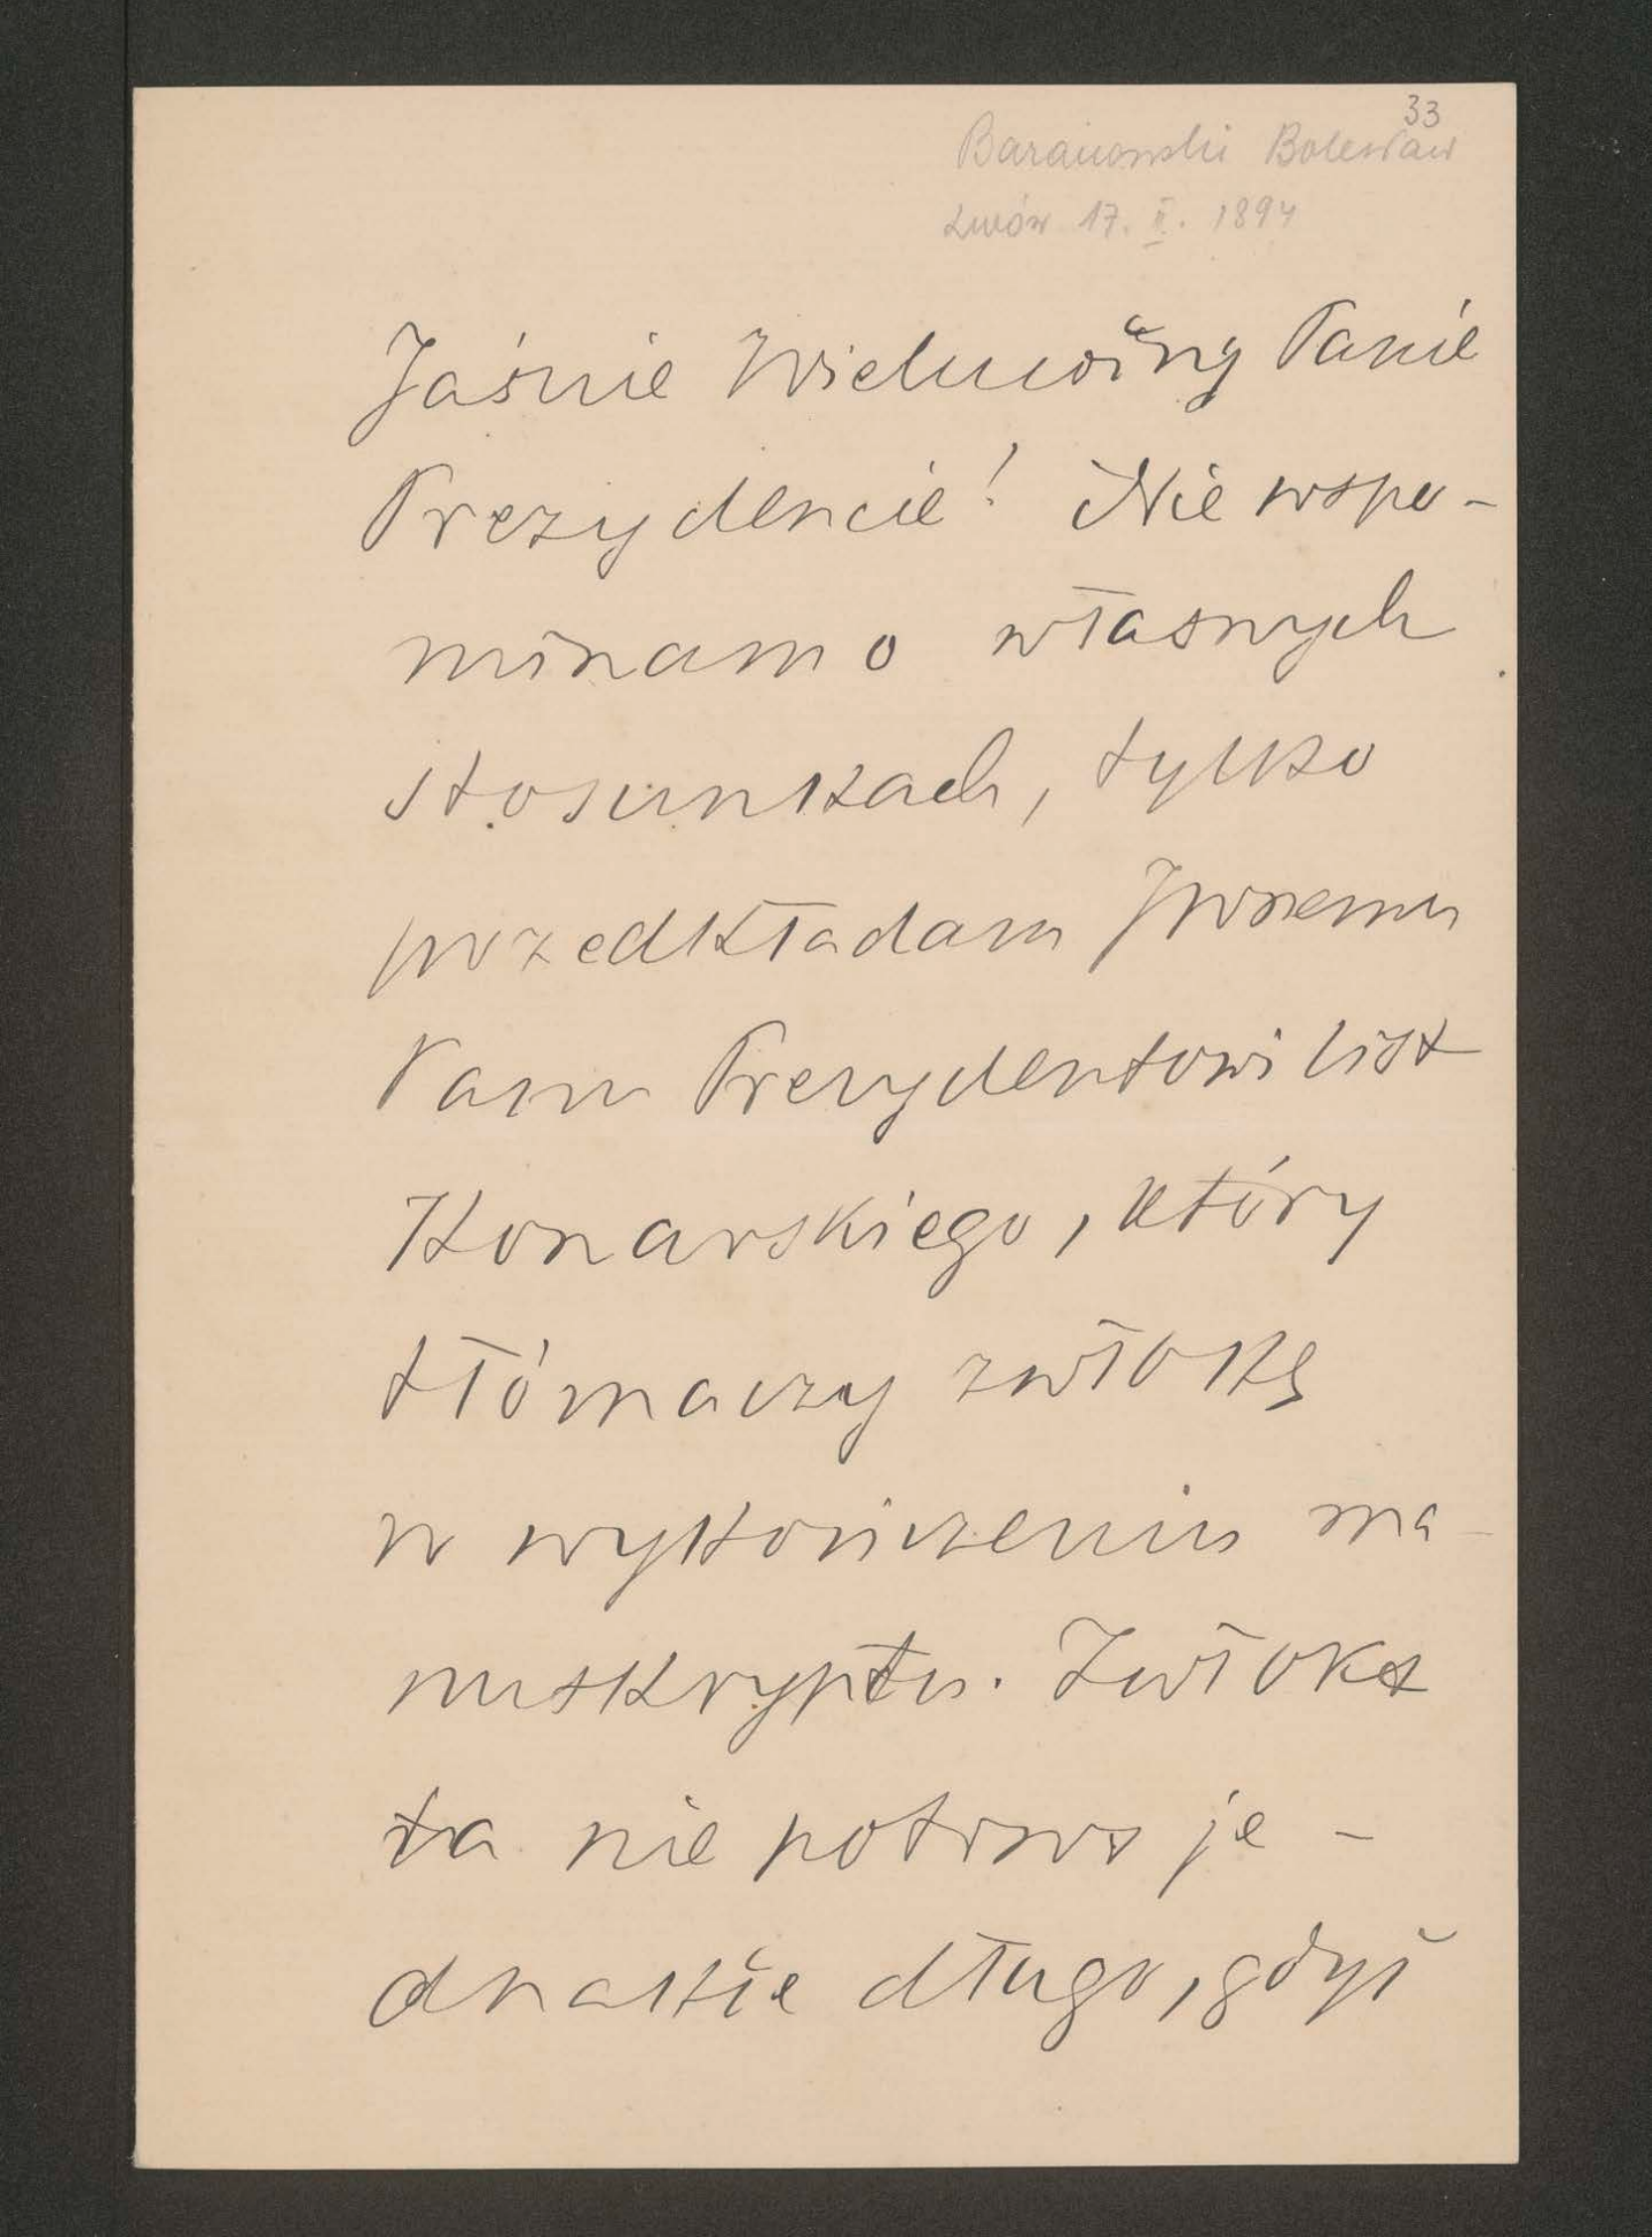 33
Baranowski Bolesław
Lwów 17. II. 1894
Jaśnie Wielmożny Panie
Prezydencie! Nie wspo-
minam o własnych
stosunkach, tylko
przedkładam JWnemu
Panu Prezydentowi list
Konarskiego, który
tłómaczy zwłokę
w wykończeniu ma-
nuskryptu. Zwłoka
ta nie potrwa je-
dnakże długo, gdyż